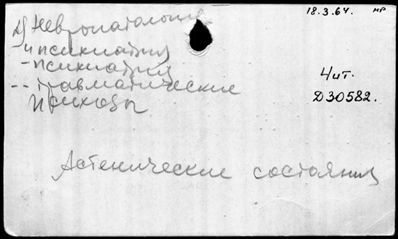 18.3.64. мр
Невропатология
и психиатрия
- психиатрия
-- травматические
психозы
Чит.
Д30582.
Астенические состояния